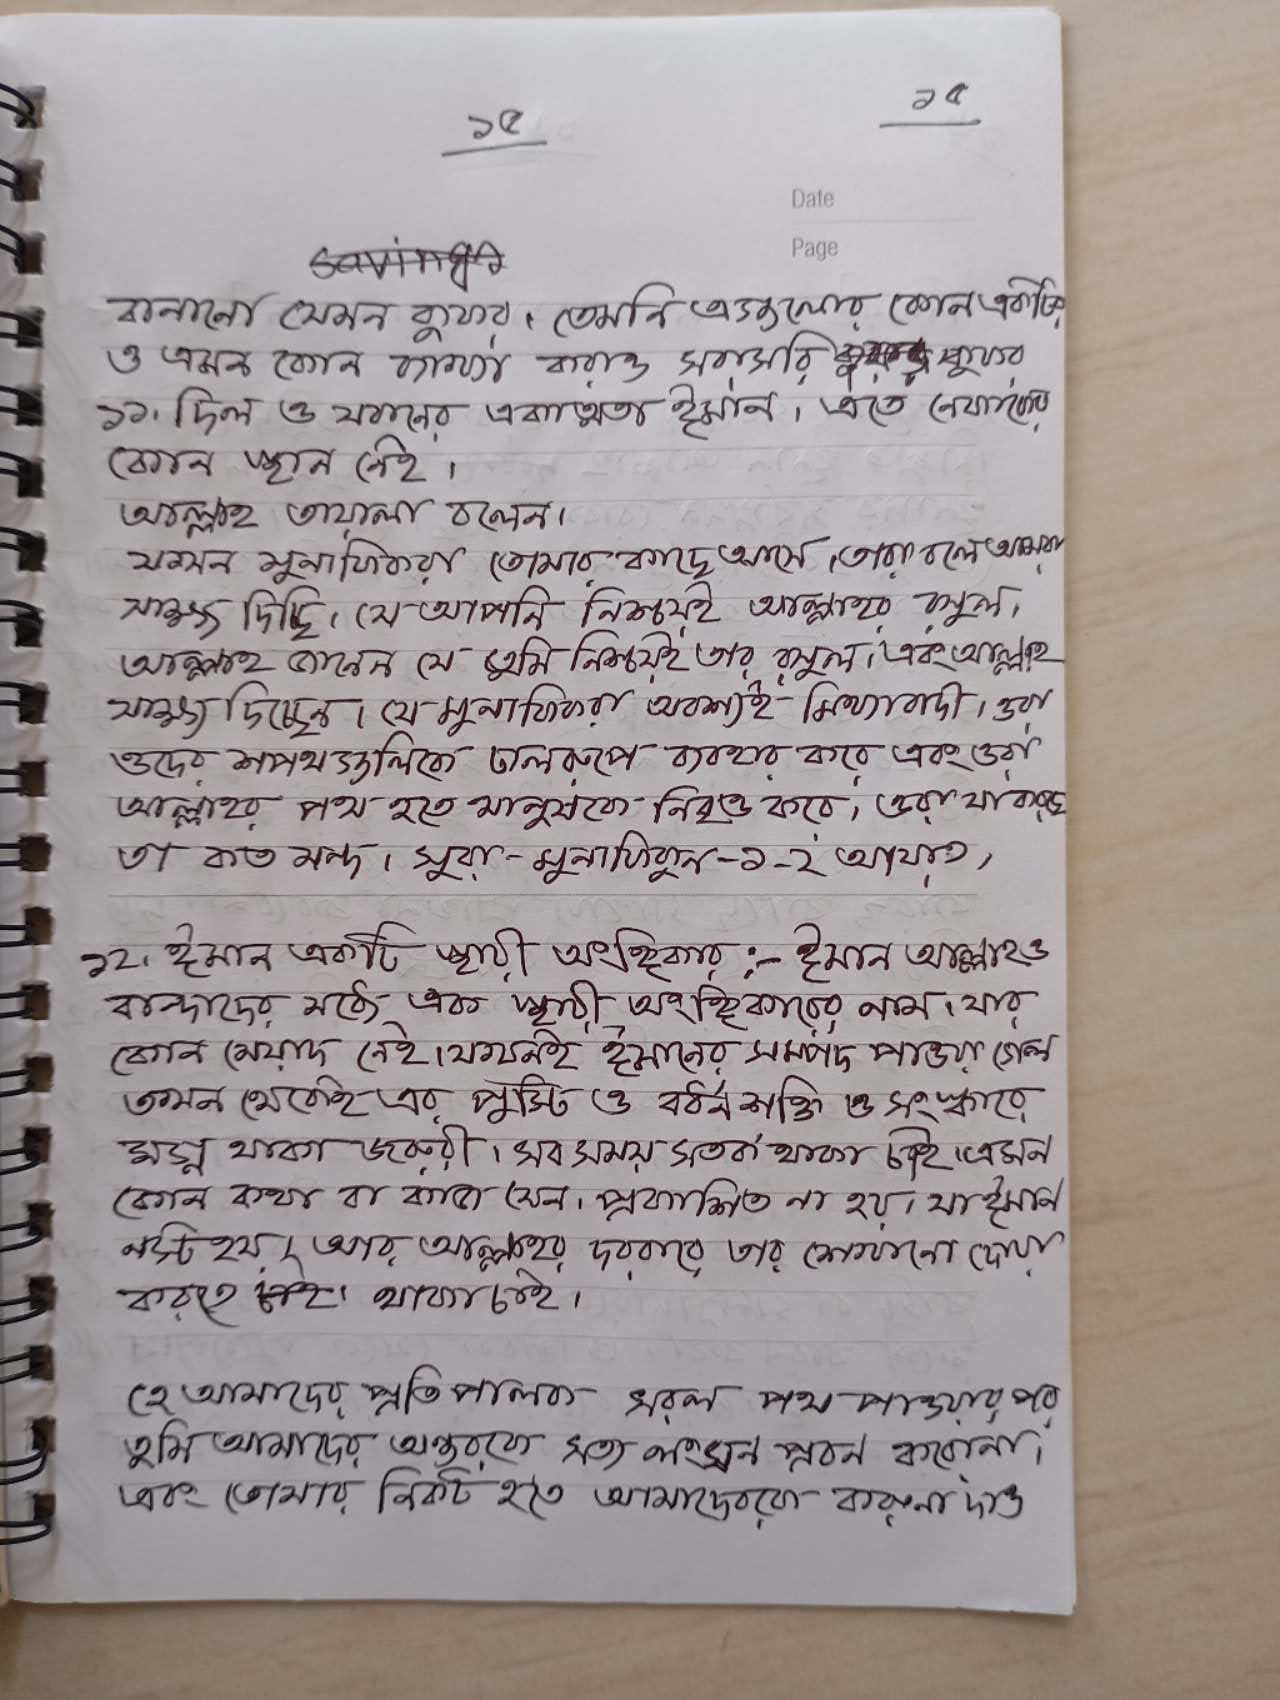 ১৫
১৫
Date
Page
বানানো যেমন কুফর। তেমনি এগুলোর কোন একটির
ও এমন কোন ব্যাখ্যা করাও সরাসরি কুফর
১১। দিল ও যবানের একাত্মতা ঈমান। এতে নেফাকের
কোন স্থান নেই।
আল্লাহ তায়ালা বলেন।
যখন মুনাফিকরা তোমার কাছে আসে। তারা বলে আমরা
সাক্ষ্য দিচ্ছি। যে আপনি নিশ্চয়ই আল্লাহর রসুল।
আল্লাহ জানেন যে তুমি নিশ্চয়ই তার রসুল। এবং আল্লাহ
সাক্ষ্য দিচ্ছেন। যে মুনাফিকরা অবশ্যই মিথ্যাবাদী। ওরা
ওদের শপথগুলিকে ঢালরূপে ব্যবহার করে এবং ওরা
আল্লাহর পথ হতে মানুষকে নিবৃত্ত করে। ওরা যা করছে
তা কত মন্দ। সুরা-মুনাফিকুন-১-২ আয়াত।
১২। ঈমান একটি স্থায়ী অংঙ্গিকার :- ঈমান আল্লাহ ও
বান্দাদের মধ্যে এক স্থায়ী অংঙ্গিকারের নাম। যার
কোন মেয়াদ নেই। যখনই ঈমানের সম্পদ পাওয়া গেল
তখন থেকেই এর পুস্টি ও বর্ধন শক্তি ও সংস্কারে
মগ্ন থাকা জরুরী। সব সময় সতর্ক থাকা চাই। এমন
কোন কথা বা কাজ যেন। প্রকাশিত না হয়। যা ঈমান
নস্ট হয়। আর আল্লাহর দরবারে তার শেখানো দোয়া
করতে থাকা চাই।
হে আমাদের প্রতিপালক সরল পথ পাওয়ার পর
তুমি আমাদের অন্তরকে সত্য লংঘন প্রবন করোনা।
এবং তোমার নিকট হতে আমাদেরকে করুনা দাও